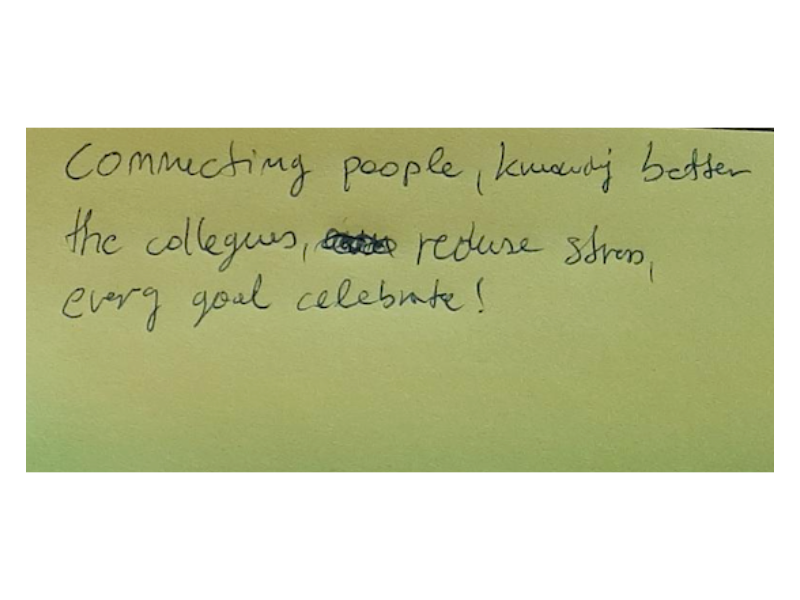 Connecting people, knowing better
the collegues, reduse stress,
every goal celebrate!